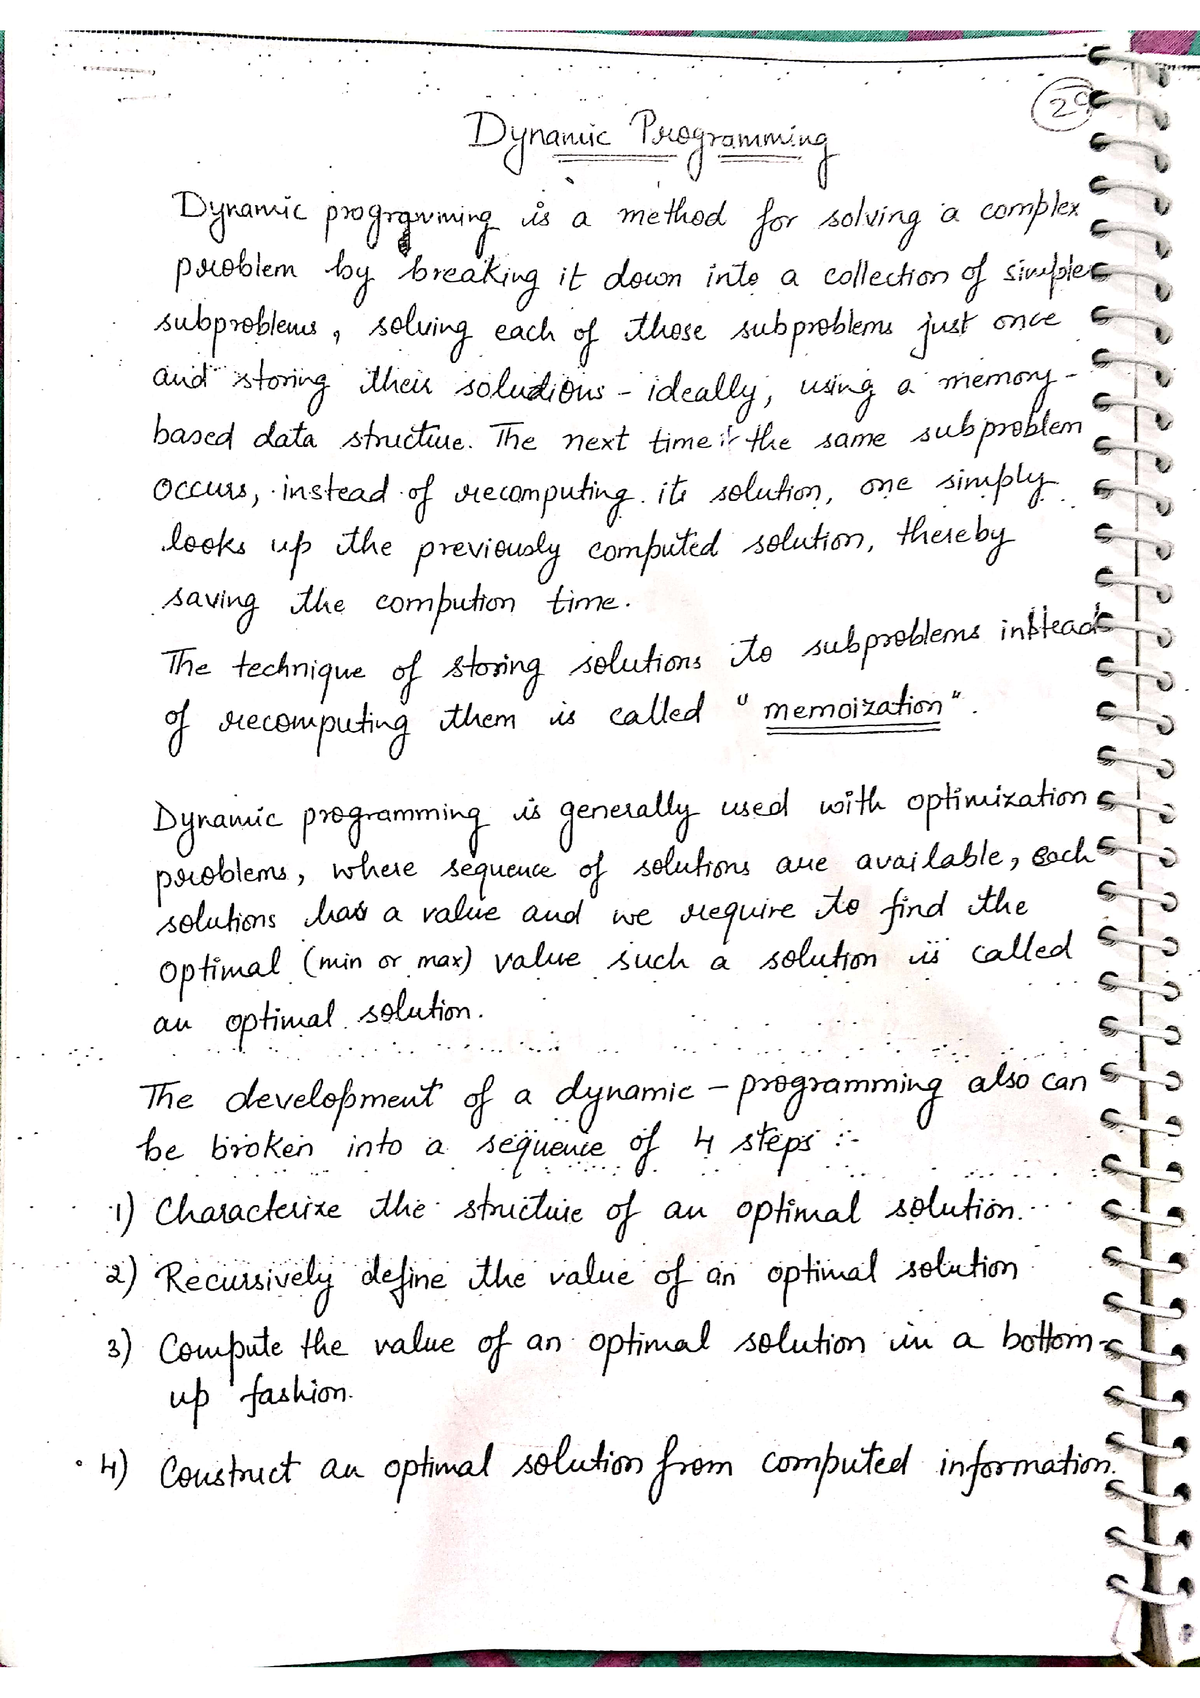 Dynamic Programming
Dynamic programming is a method for solving a complex
problem by breaking it down into a collection of simpler
subproblems, solving each of those subproblems just once
and storing their solutions - ideally, using a memory-
based data structure. The next time if the same subproblem
occurs, instead of recomputing its solution, one simply
looks up the previously computed solution, thereby
saving the compution time.
The technique of storing solutions to subproblems instead
of recomputing them is called "memoization".
Dynamic programming is generally used with optimization
problems, where sequence of solutions are available, Each
solutions has a value and we require to find the
optimal (min or max) value such a solution is called
an optimal solution.
The development of a dynamic - programming also can
be broken into a sequence of 4 steps :-
1) Characterize the structure of an optimal solution.
2) Recursively define the value of an optimal solution
3) Compute the value of an optimal solution in a bottom-
up fashion.
4) Construct an optimal solution from computed information.